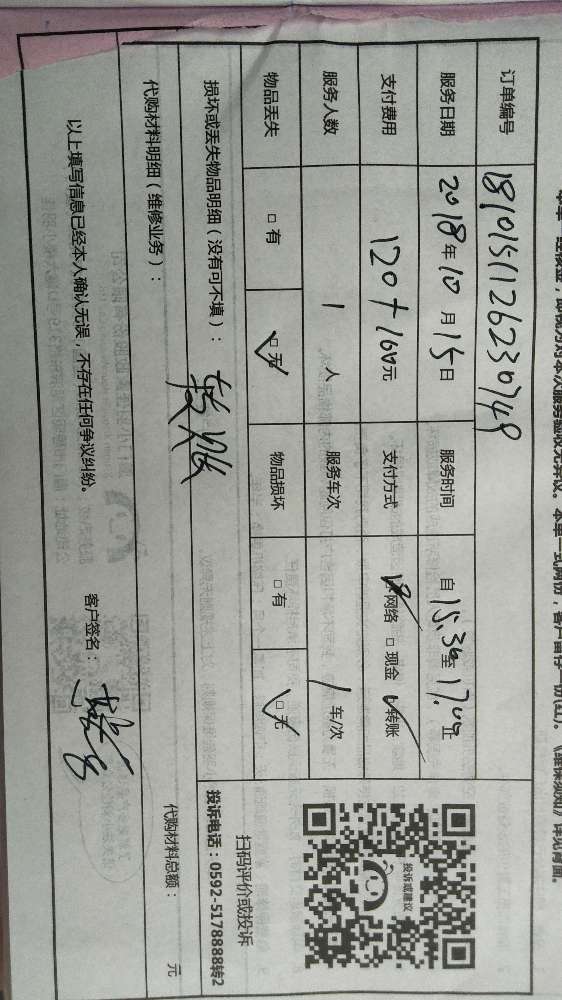 订单编号 1810151126230749
服务日期 2018年10月15日 服务时间 自15:30至17:00止
支付费用 120+160元 支付方式 网络 □现金 转账
服务人数 1人 服务车次 1车/次
物品丢失 □有 □无 物品损坏 □有 □无
投诉或建议
扫码评价或投诉
投诉电话：0592-5178888转2
损坏或丢失物品明细（没有可不填）：
代购材料明细（维修业务）： 代购材料总额： 元
以上填写信息已经本人确认无误，不存在任何争议纠纷。
客户签名：